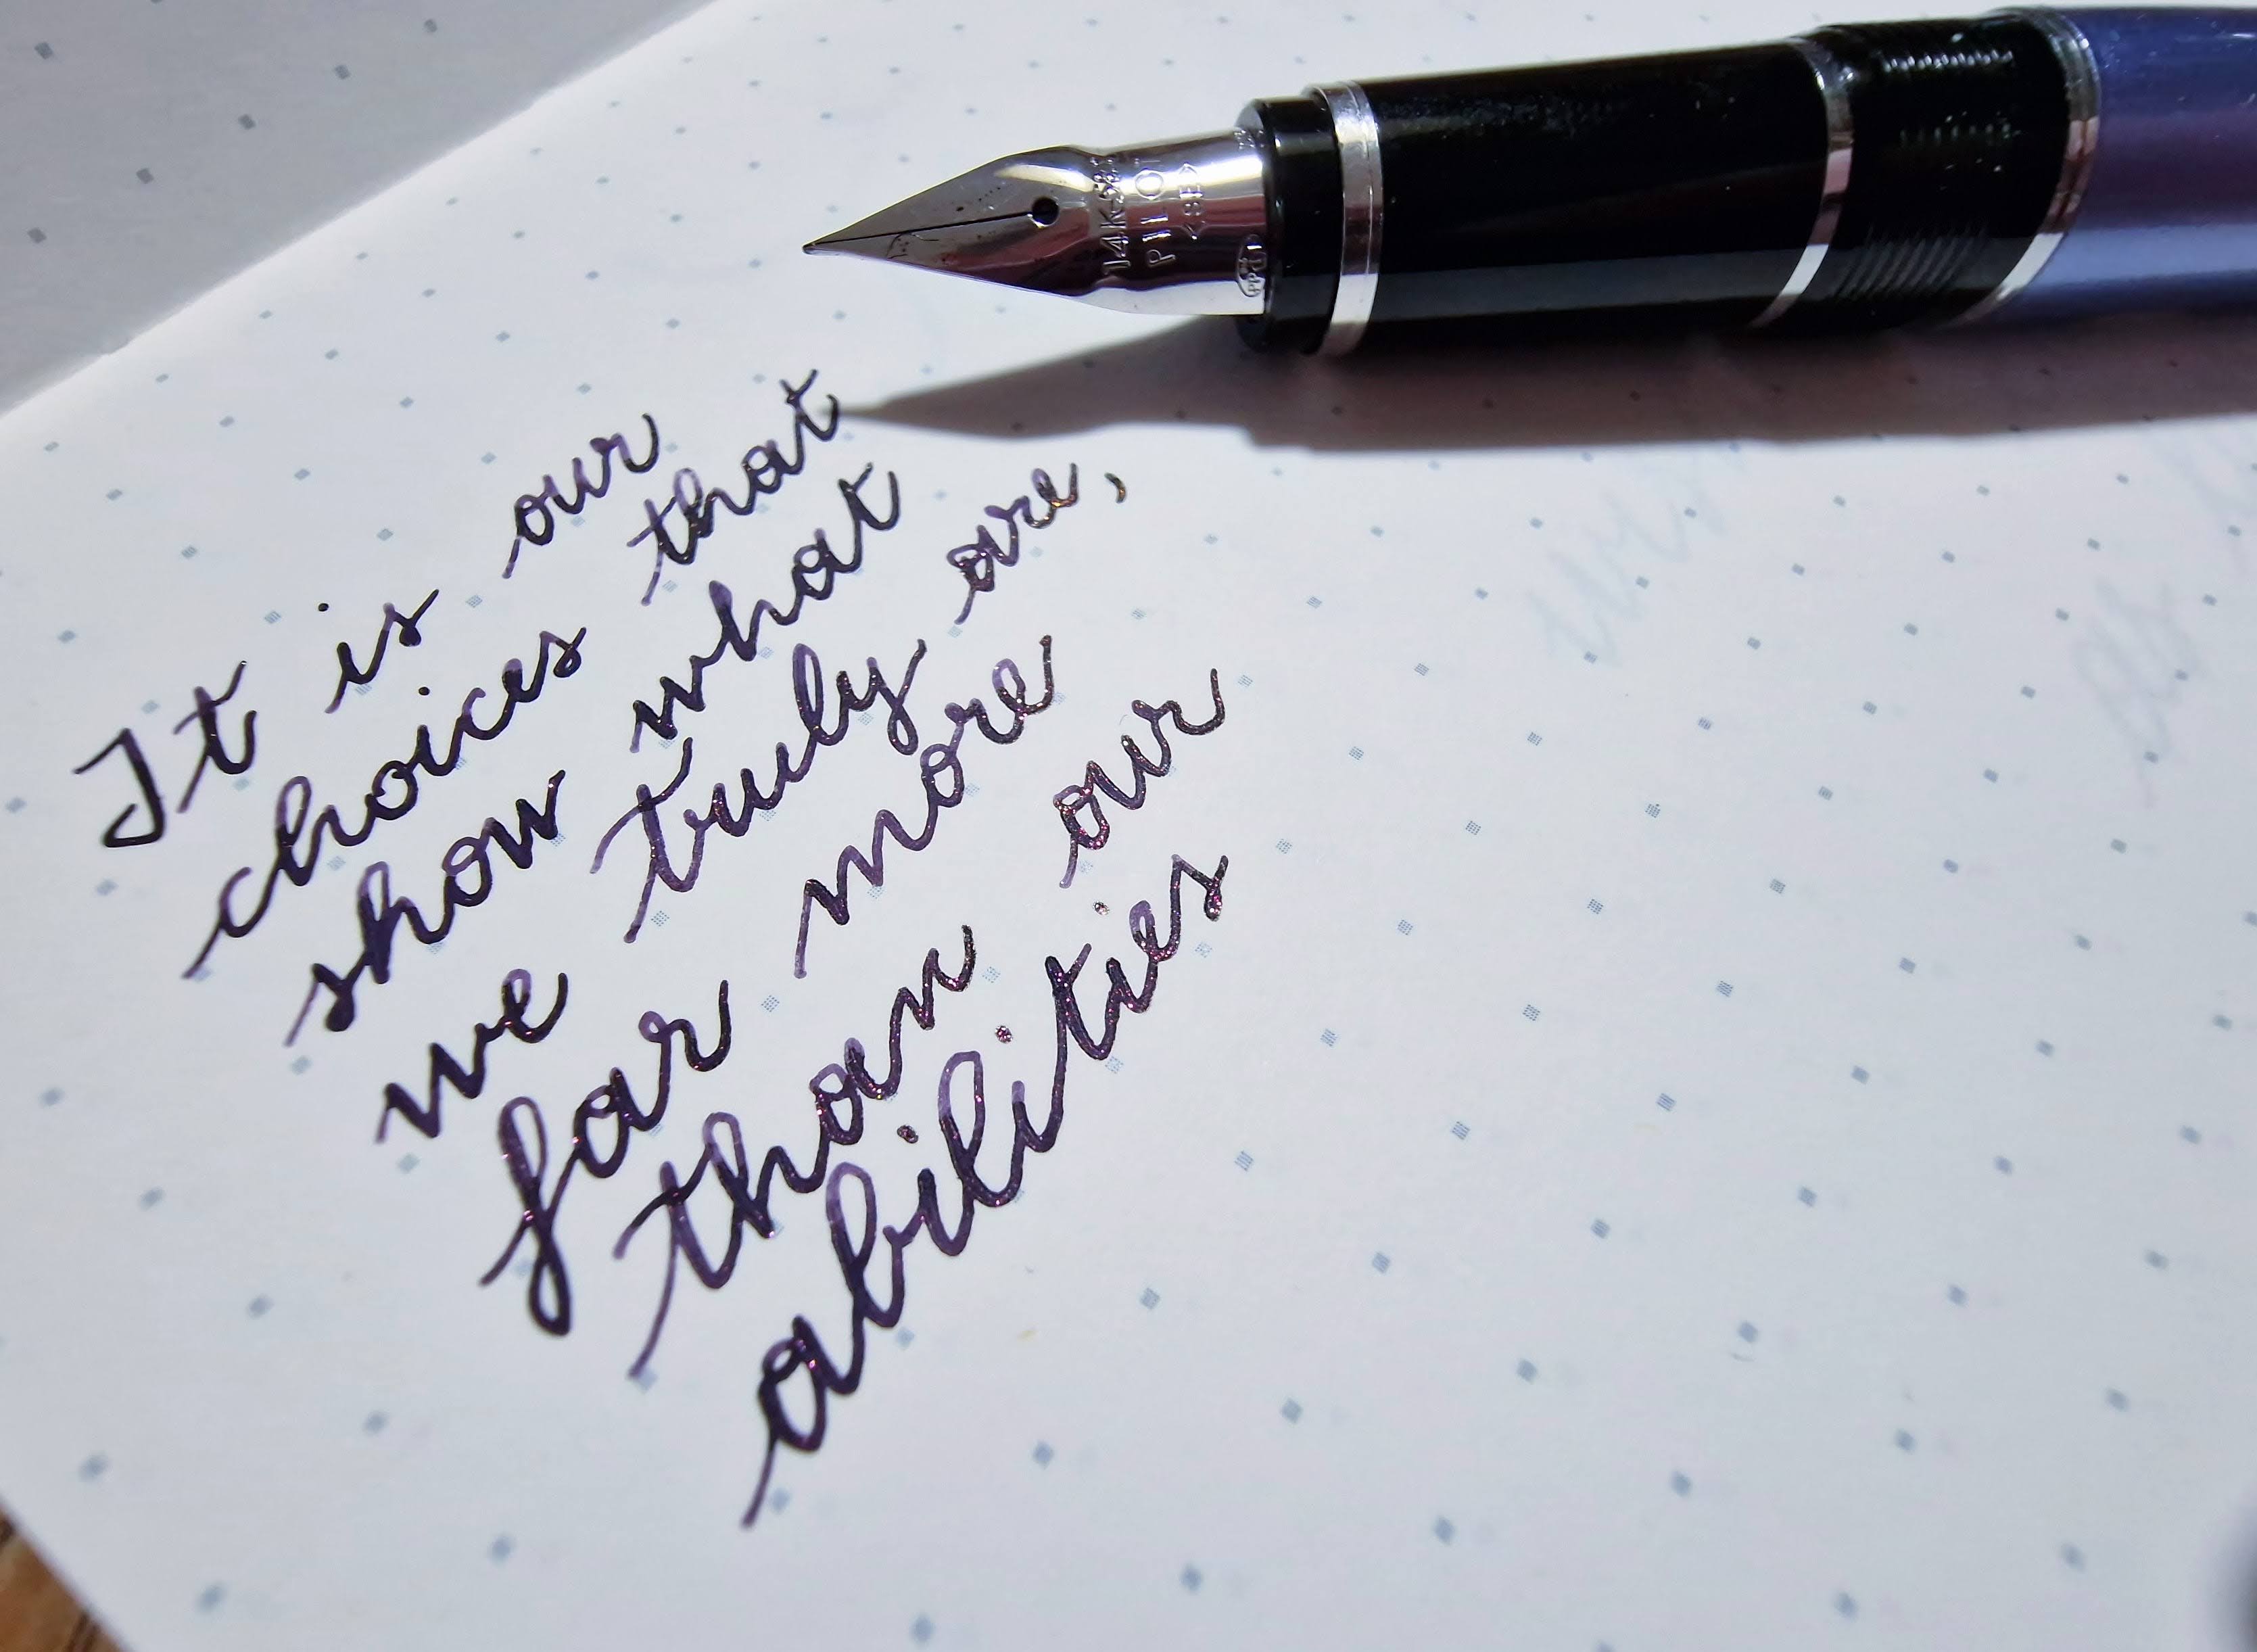 14K-585
PILOT
<SEF>
It is our
choices that
show what
we truly are,
far more
than our
abilities